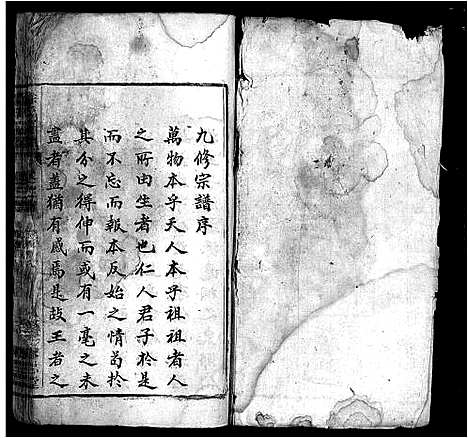 九修宗譜序
萬物本乎天人本乎祖祖者人
之所由生者也仁人君子於是
而不忘而報本反始之情苟於
其分之得伸而或有一毫之未
盡者蓋猶有慼焉是故王者之